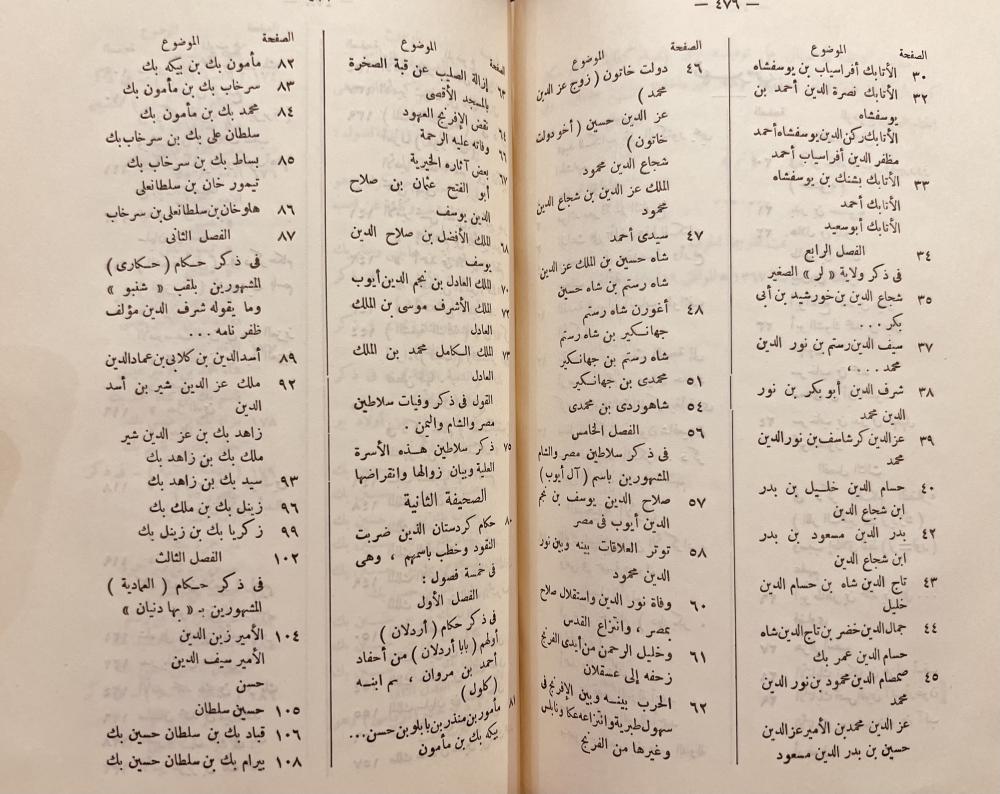 — ٤٧٦ —
الصفحة الموضوع
٣٠ الأتابك أفراسياب بن يوسفشاه
٣٢ الأتابك نصرة الدين أحمد بن
يوسفشاه
الأتابك ركن الدين يوسفشاه أحمد
مظفر الدين أفراسياب أحمد
٣٣ الأتابك بشنك بن يوسفشاه
الأتابك أحمد
الأتابك أبو سعيد
٣٤ الفصل الرابع
فى ذكر ولاية « لر » الصغير
٣٥ شجاع الدين بن خورشيد بن أبى
بكر ...
٣٧ سيف الدين رستم بن نور الدين
محمد ...
٣٨ شرف الدين أبو بكر بن نور
الدين محمد
٣٩ عز الدين كرشاسف بن نور الدين
محمد
٤٠ حسام الدين خليل بن بدر
ابن شجاع الدين
٤٢ بدر الدين مسعود بن بدر
ابن شجاع الدين
٤٣ تاج الدين شاه بن حسام الدين
خليل
٤٤ جمال الدين خضر بن تاج الدين شاه
حسام الدين عمر بك
٤٥ صمصام الدين محمود بن نور الدين
محمد
عز الدين محمد بن الأمير عز الدين
حسين بن بدر الدين مسعود
الصفحة الموضوع
٤٦ دولت خاتون ( زوج عز الدين
محمد )
عز الدين حسين ( أخو دولت
خاتون )
شجاع الدين محمود
الملك عز الدين بن شجاع الدين
محمود
٤٧ سيدى أحمد
شاه حسين بن الملك عز الدين
شاه رستم بن شاه حسين
٤٨ أغورن شاه رستم
جهانكير بن شاه رستم
شاه رستم بن جهانكير
٥١ محمدى بن جهانكير
٥٤ شاهوردى بن محمدى
٥٦ الفصل الخامس
فى ذكر سلاطين مصر والشام
المشهورين باسم ( آل أيوب )
٥٧ صلاح الدين يوسف بن نجم
الدين أيوب فى مصر
٥٨ توتر العلاقات بينه وبين نور
الدين محمود
٦٠ وفاة نور الدين واستقلال صلاح
بمصر ، وانتزاع القدس
٦١ وخليل الرحمن من أيدى الفرنج
زحفه إلى عسقلان
٦٢ الحرب بينه وبين الإفرنج فى
سهول طبرية وانتزاعه عكا ونابلس
وغيرها من الفرنج
الصفحة الموضوع
٦٣ إزالة الصليب عن قبة الصخرة
بالمسجد الأقصى
٦٤ نقض الإفرنج العهود
٦٦ وفاته عليه الرحمة
٦٧ بعض آثاره الخيرية
أبو الفتح عثمان بن صلاح
الدين يوسف
٦٨ الملك الأفضل بن صلاح الدين
يوسف
٧٠ الملك العادل بن نجم الدين أيوب
٧٢ الملك الأشرف موسى بن الملك
العادل
٧٣ الملك الكامل محمد بن الملك
العادل
القول فى ذكر وفيات سلاطين
مصر والشام واليمن .
٧٥ ذكر سلاطين هذه الأسرة
العلية وبيان زوالها وانقراضها
الصحيفة الثانية
٨٠ حكام كردستان الذين ضربت
النقود وخطب باسمهم ، وهى
فى خمسة فصول :
الفصل الأول
فى ذكر حكام ( أردلان )
أولهم ( بابا أردلان ) من أحفاد
أحمد بن مروان ، ثم ابنه
( كلول )
٨١ مأمور بن منذر بن بابلو بن حسن ...
بيكه بك بن مأمون
الصفحة الموضوع
٨٢ مأمون بك بن بيكه بك
٨٣ سرخاب بك بن مأمون بك
٨٤ محمد بك بن مأمون بك
سلطان على بك بن سرخاب بك
٨٥ بساط بك بن سرخاب بك
تيمور خان بن سلطانعلى
٨٦ هلوخان بن سلطانعلى بن سرخاب
٨٧ الفصل الثانى
فى ذكر حكام ( حكارى )
المشهورين بلقب « شنبو »
وما يقوله شرف الدين مؤلف
ظفر نامه ...
٨٩ أسد الدين بن كلابى بن عماد الدين
٩٢ ملك عز الدين شير بن أسد
الدين
زاهد بك بن عز الدين شير
ملك بك بن زاهد بك
٩٣ سيد بك بن زاهد بك
٩٦ زينل بك بن ملك بك
٩٩ زكريا بك بن زينل بك
١٠٢ الفصل الثالث
فى ذكر حكام ( العمادية )
المشهورين بـ « بها دنيان »
١٠٤ الأمير زين الدين
الأمير سيف الدين
حسن
١٠٥ حسين سلطان
١٠٦ قباد بك بن سلطان حسين بك
١٠٨ بيرام بك بن سلطان حسين بك